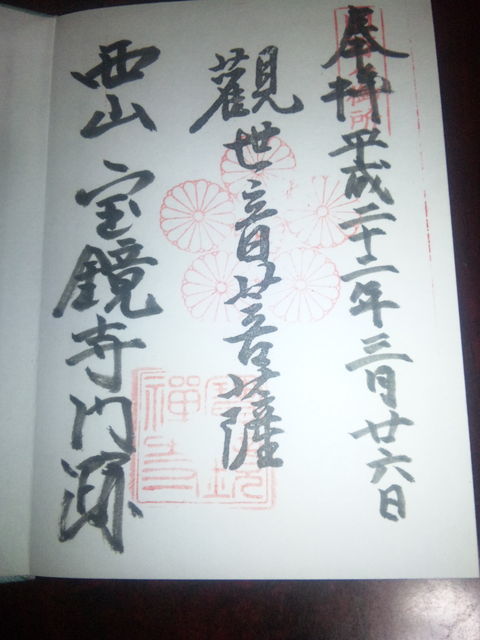 奉拝 平成二十二年三月廿六日
御所
觀世音菩薩
寳鏡
禪寺
西山 宝鏡寺門跡